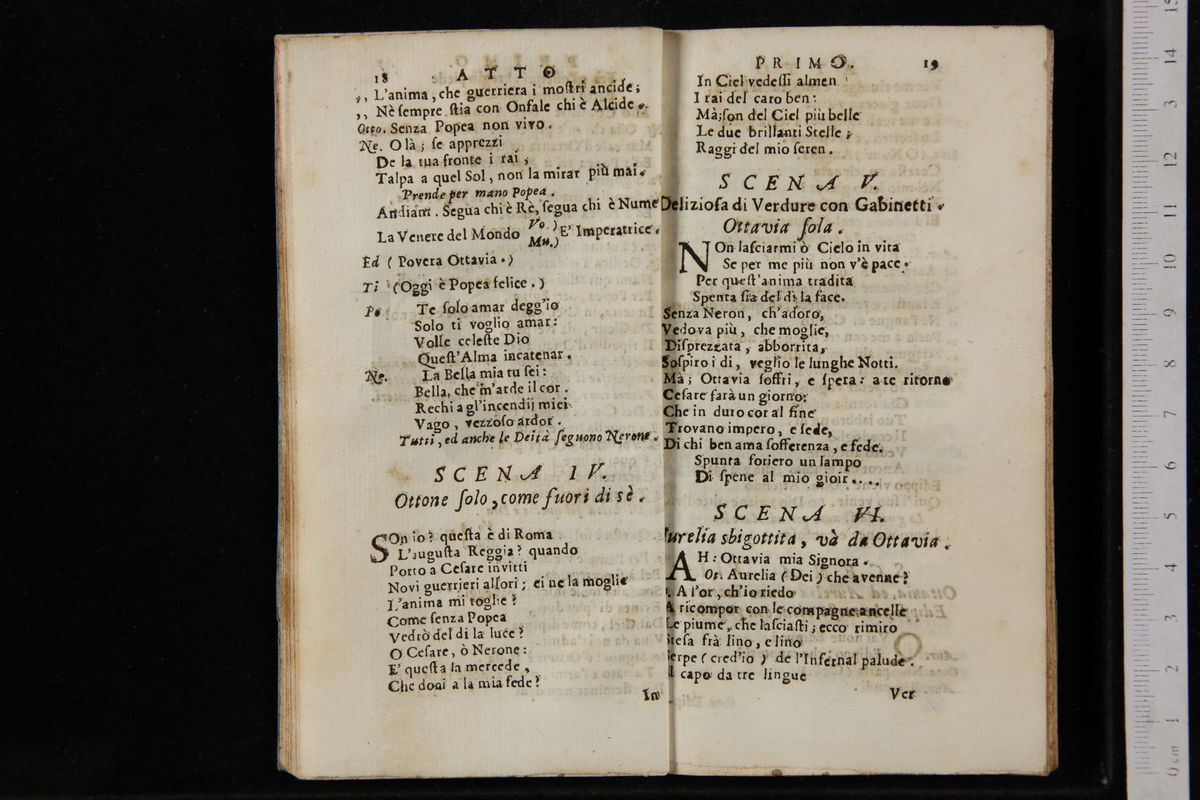 18 ATTO
,, L'anima, che guerriera i moſtri ancide;
,, Nè ſempre ſtia con Onfale chi è Alcide.
Otto. Senza Popea non vivo.
Ne. Olà; ſe apprezzi
De la tua fronte i rai;
Talpa a quel Sol, non la mirar più mai.
Prende per mano Popea.
Andiam. Segua chi è Rè, ſegua chi è Nume
La Venere del Mondo Vo. ) E' Imperatrice.
Mu.)
Ed ( Povera Ottavia. )
Ti (Oggi è Popea felice. )
Po Te ſolo amar degg'io
Solo ti voglio amar:
Volle celeſte Dio
Queſt'Alma incatenar.
Ne. La Bella mia tu ſei:
Bella, che m'arde il cor.
Rechi a gl'incendij miei
Vago, vezzoſo ardor.
Tutti, ed anche le Deità ſeguono Nerone.
SCENA IV.
Ottone ſolo, come fuori di sè.
SOn io? queſta è di Roma
L'auguſta Reggia? quando
Porto a Ceſare invitti
Novi guerrieri allori; ei ne la moglie
L'anima mi toglie?
Come ſenza Popea
Vedrò del dì la luce?
O Ceſare, ò Nerone:
E' queſta la mercede,
Che doni a la mia fede?
In
PRIMO. 19
In Ciel vedeſſi almen
I rai del caro ben:
Mà; ſon del Ciel più belle
Le due brillanti Stelle;
Raggi del mio ſeren.
SCENA V.
Delizioſa di Verdure con Gabinetti.
Ottavia ſola.
NOn laſciarmi ò Cielo in vita
Se per me più non v'è pace.
Per queſt'anima tradita
Spenta ſia del dì la face.
Senza Neron, ch'adoro,
Vedova più, che moglie,
Diſprezzata, abborrita,
Soſpiro i dì, veglio le lunghe Notti.
Mà; Ottavia ſoffri, e ſpera: a te ritorno
Ceſare farà un giorno:
Che in duro cor al fine
Trovano impero, e ſede,
Di chi ben ama ſofferenza, e fede.
Spunta foriero un lampo
Di ſpene al mio gioir....
SCENA VI.
Aurelia sbigottita, và da Ottavia.
AH: Ottavia mia Signora.
Ot. Aurelia (Dei) che avenne?
A l'or, ch'io riedo
A ricompor con le compagne ancelle
Le piume, che laſciaſti; ecco rimiro
Steſa frà lino, e lino
Serpe (cred'io) de l'Infernal palude.
Il capo da tre lingue
Ver